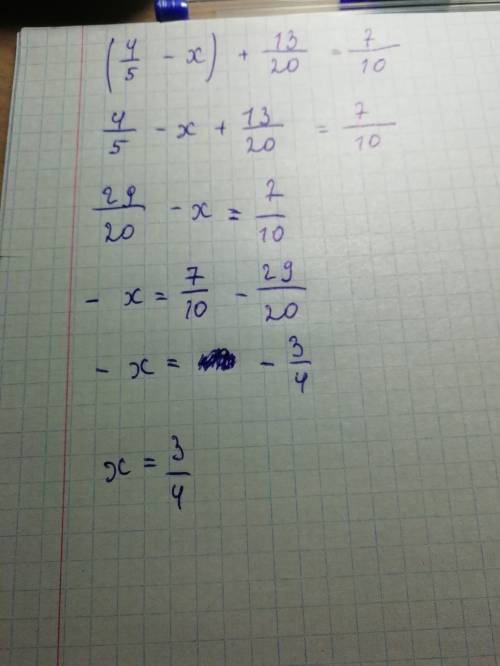 (4/5 - x) + 13/20 = 7/10
4/5 - x + 13/20 = 7/10
29/20 - x = 7/10
- x = 7/10 - 29/20
- x = - 3/4
x = 3/4